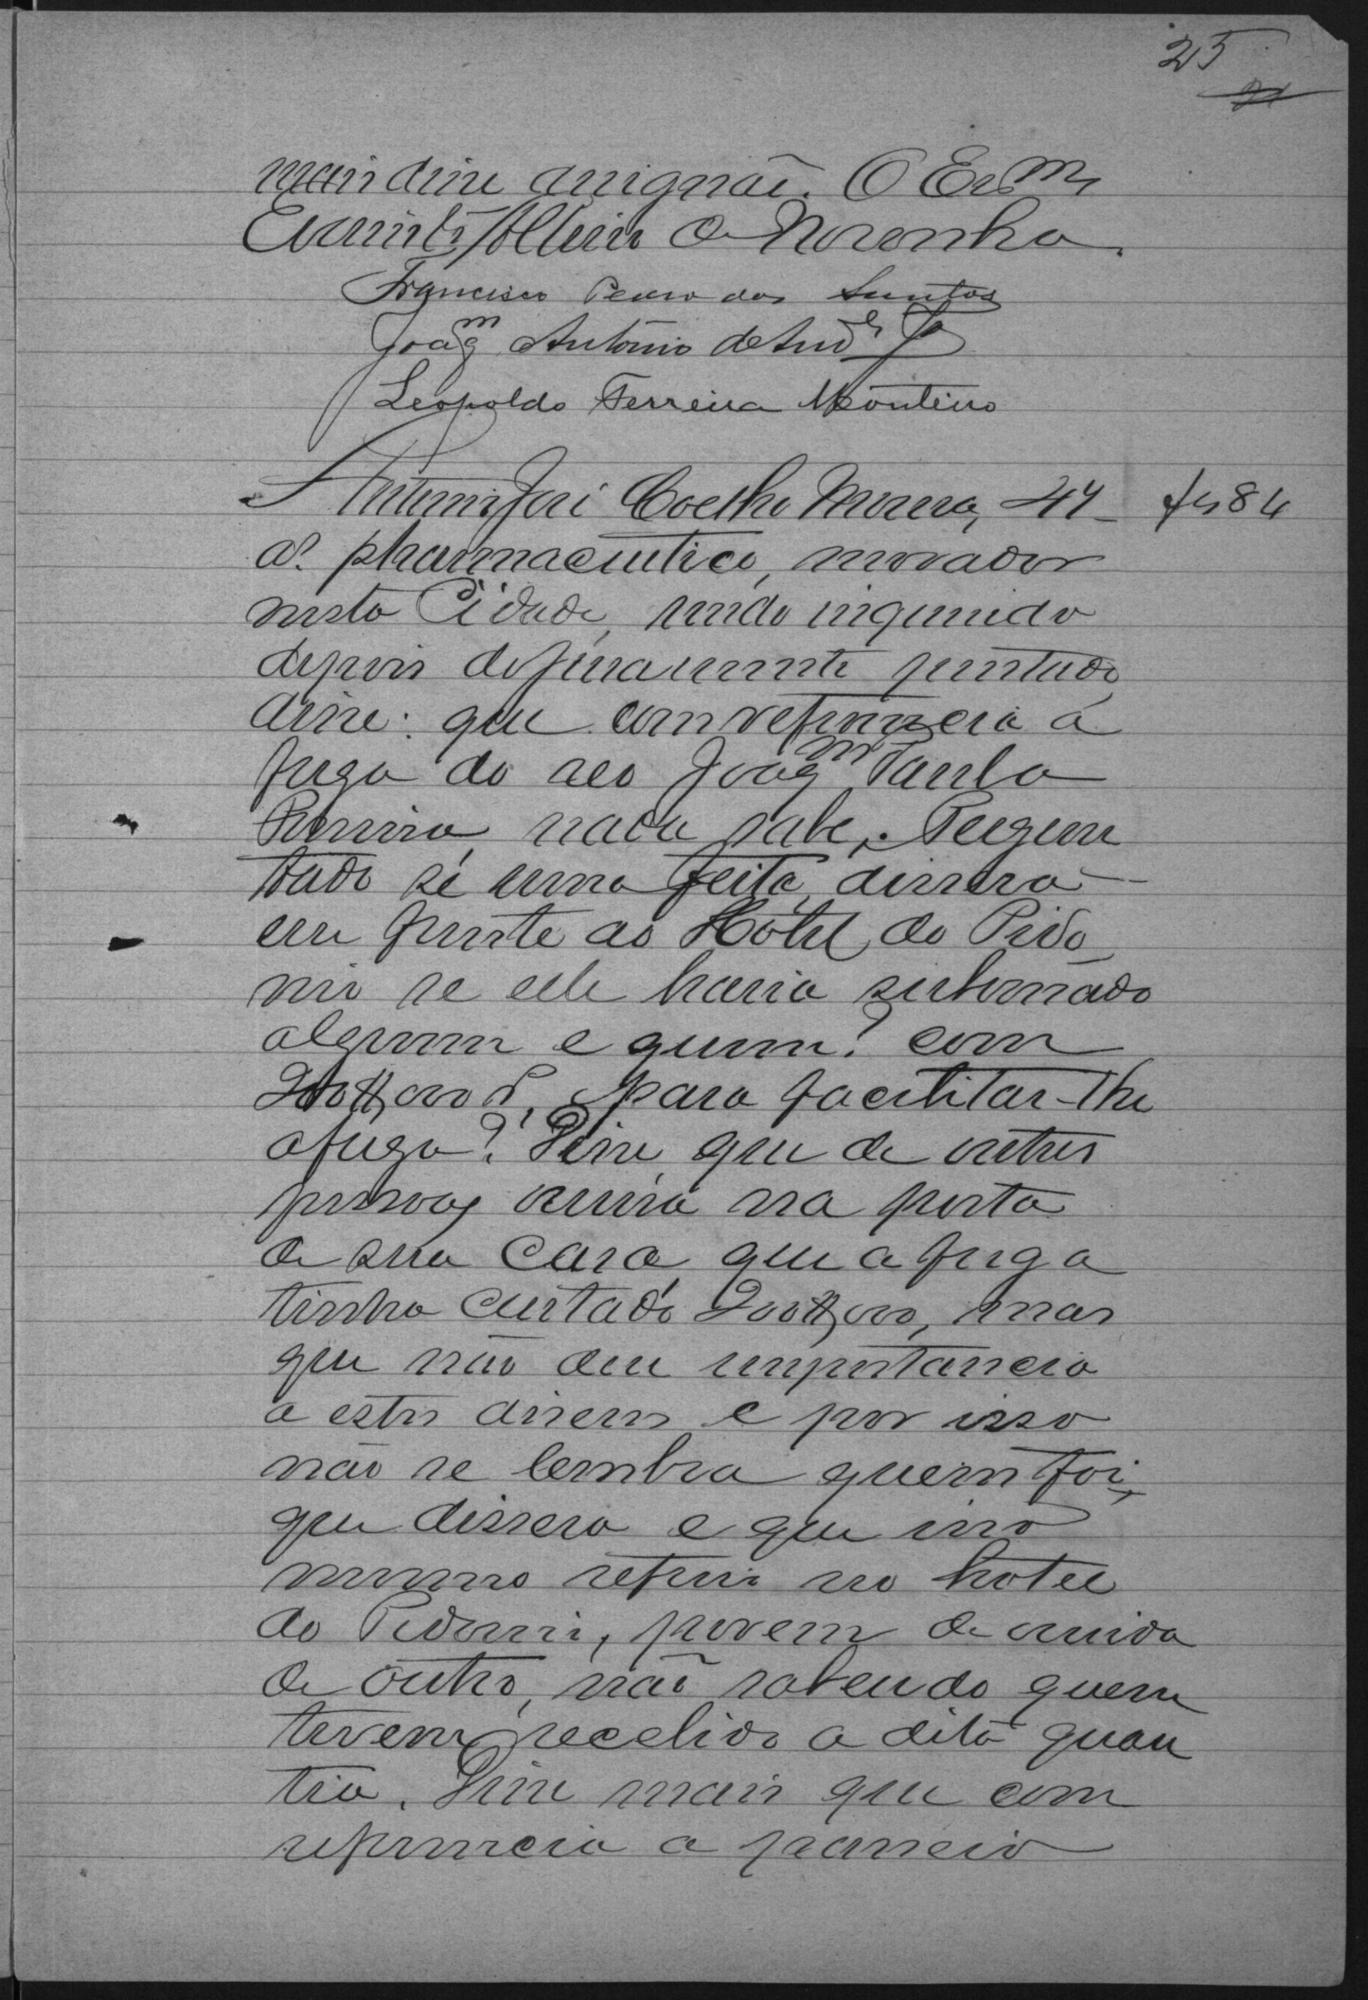 25
mais disse assignão. O Escm
Evaristo Albino de Noronha.
Francisco Pedro dos Santos
Joaqm Antonio de Andre Jor
Leopoldo Ferreira Monteiro
Antonio José Coelho Moreira, 44 fls 84
as. pharmaceutico, morador
nesta Cidade, sendo inquirido
depois de juramente prestado
disse: que com referencia á
fuga do reo Joaqm Paula
Pereira, nada sabe. Pergun
tado sé uma feita, dissera
em frente ao Hotel do Pedo
nio se elle havia subornado
alguem e quem? com
200$000 rs, para facilitar-lhe
a fuga? Disse que de outras
pessoas ouvira na porta
de sua casa, que a fuga
tinha custado 200$000, mas
que não deu importancia
a estes dizeres e por isso
não se lembra quem foi,
que dissera e que isso
mesmo referio no hotel
do Pidonio, porem de ouvida
de outro, não sabendo quem
tivesse recebido a dita quan
tia. Disse mais que com
referencia a passeio